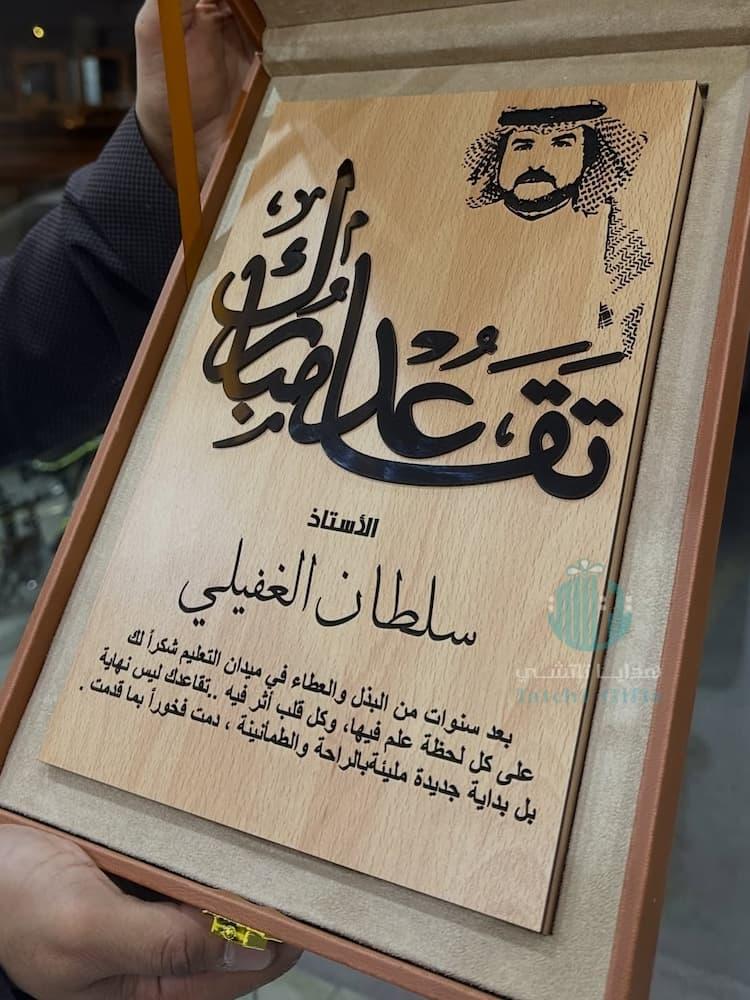 تَقَاعُدٌ مبارك
الأستاذ
سلطان الغفيلي
بعد سنوات من البذل والعطاء في ميدان التعليم شكراً لك
على كل لحظة علم فيها، وكل قلب أثر فيه ..تقاعدك ليس نهاية
بل بداية جديدة مليئةبالراحة والطمأنينة ، دمت فخوراً بما قدمت .
هدايا تاتشي
Tatchi Gifts